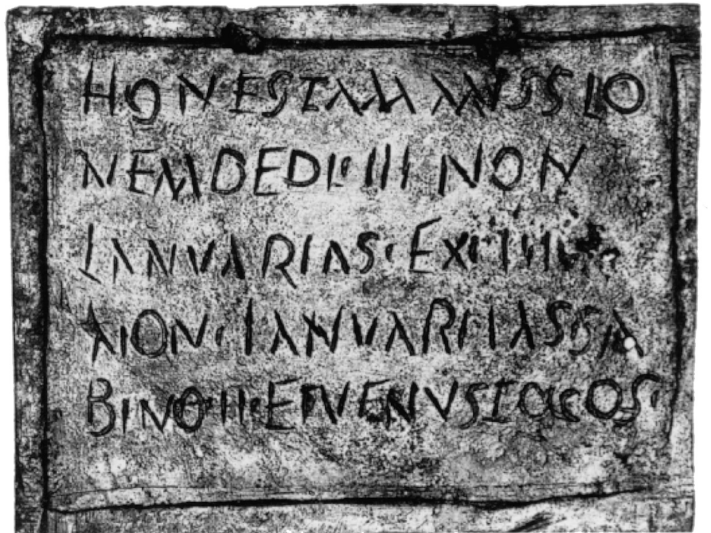 HONESTAM MISSIO
NEM DEDI III NON
IANVARIAS EX IIII
NON IANVARIAS SA
BINO II ET VENVSTO COS